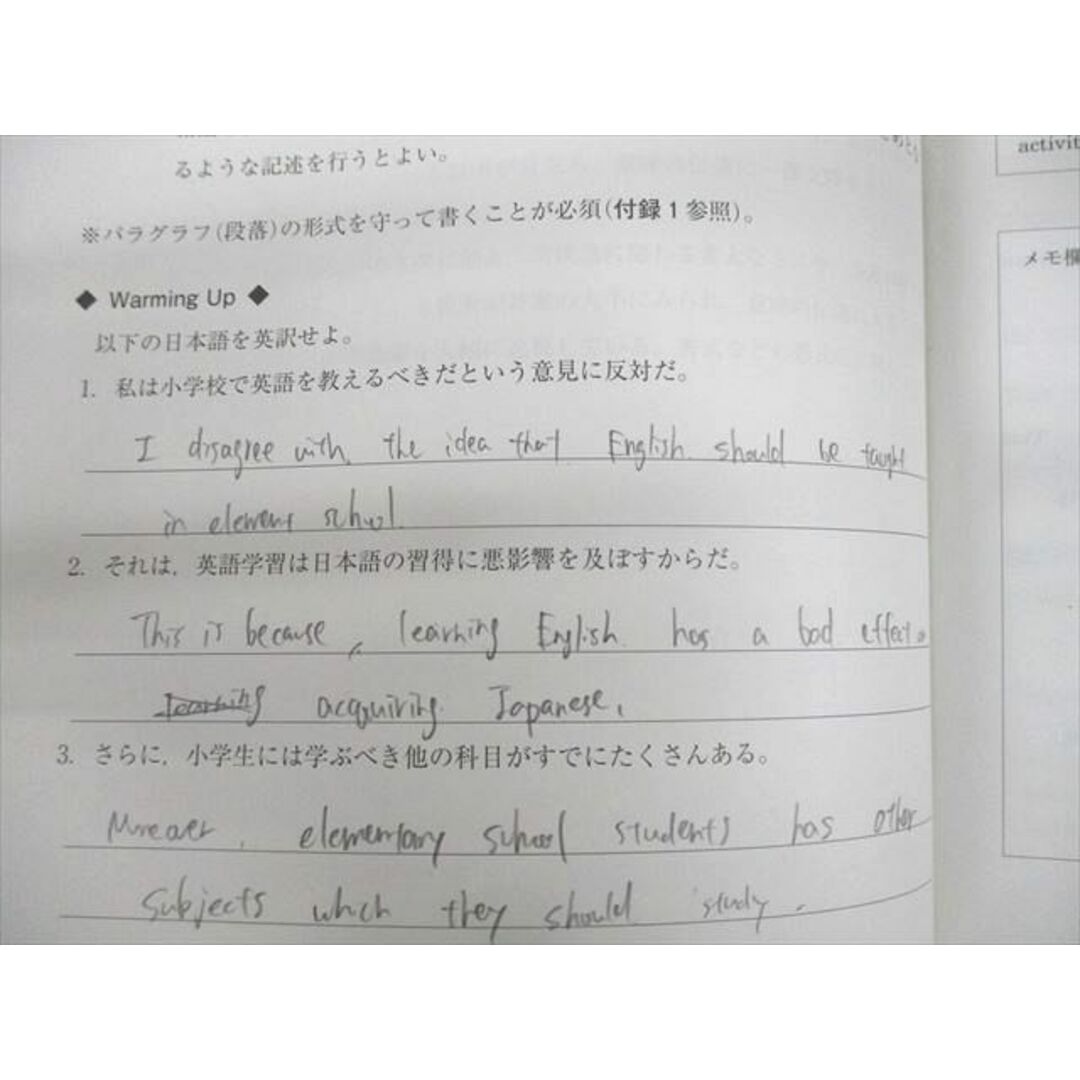 るような記述を行うとよい。
※パラグラフ(段落)の形式を守って書くことが必須(付録1参照)。
activit
メモ欄
◆ Warming Up ◆
以下の日本語を英訳せよ。
1. 私は小学校で英語を教えるべきだという意見に反対だ。
I disagree with the idea that English should be taught
in element school.
2. それは，英語学習は日本語の習得に悪影響を及ぼすからだ。
This is because, learning English has a bad effect
learning acquiring Japanese.
3. さらに，小学生には学ぶべき他の科目がすでにたくさんある。
Moreover, elementary school students has other
subjects which they should study.